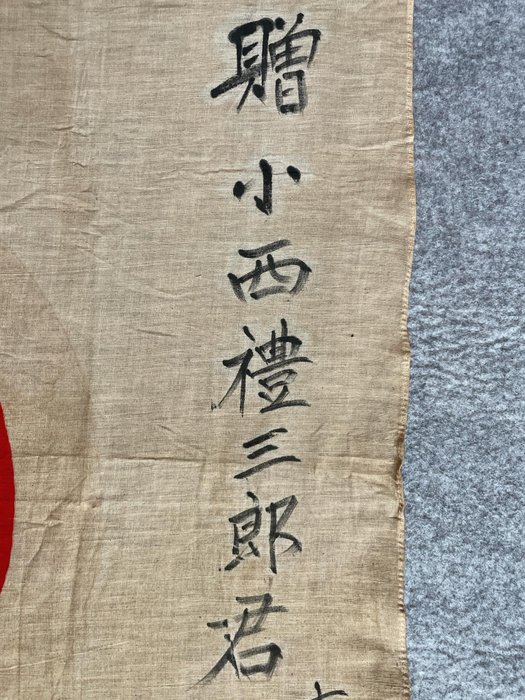 贈小西禮三郎君